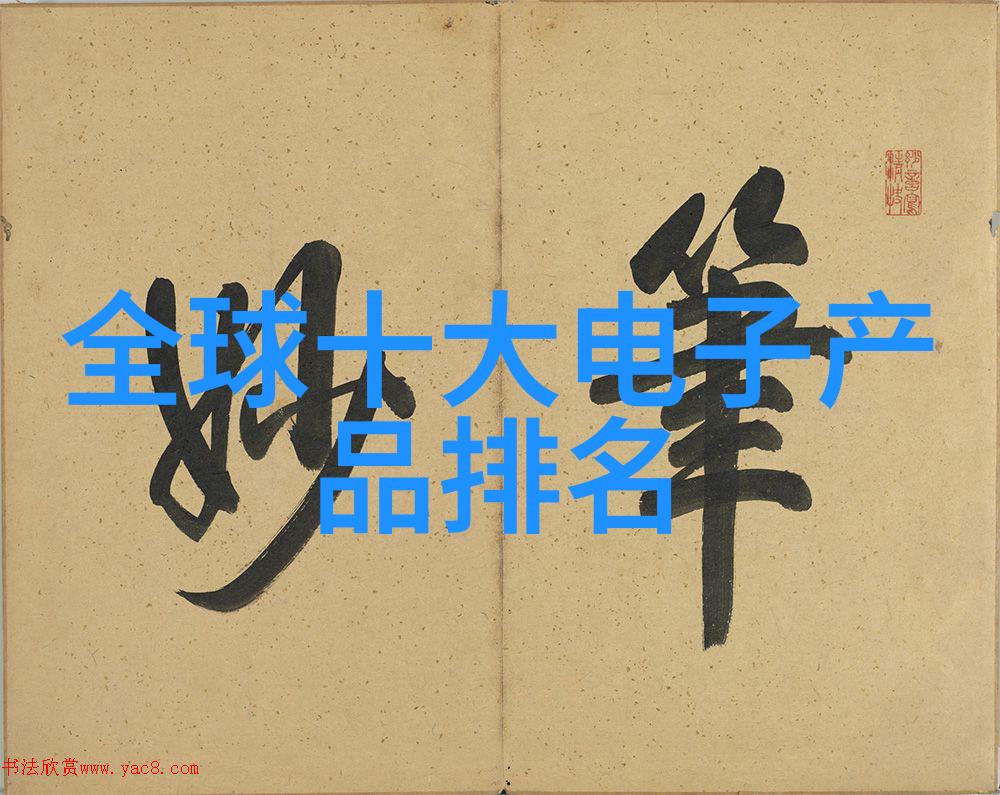 筆妙
全球十大电子产
品排名
书法欣赏www.yac8.com